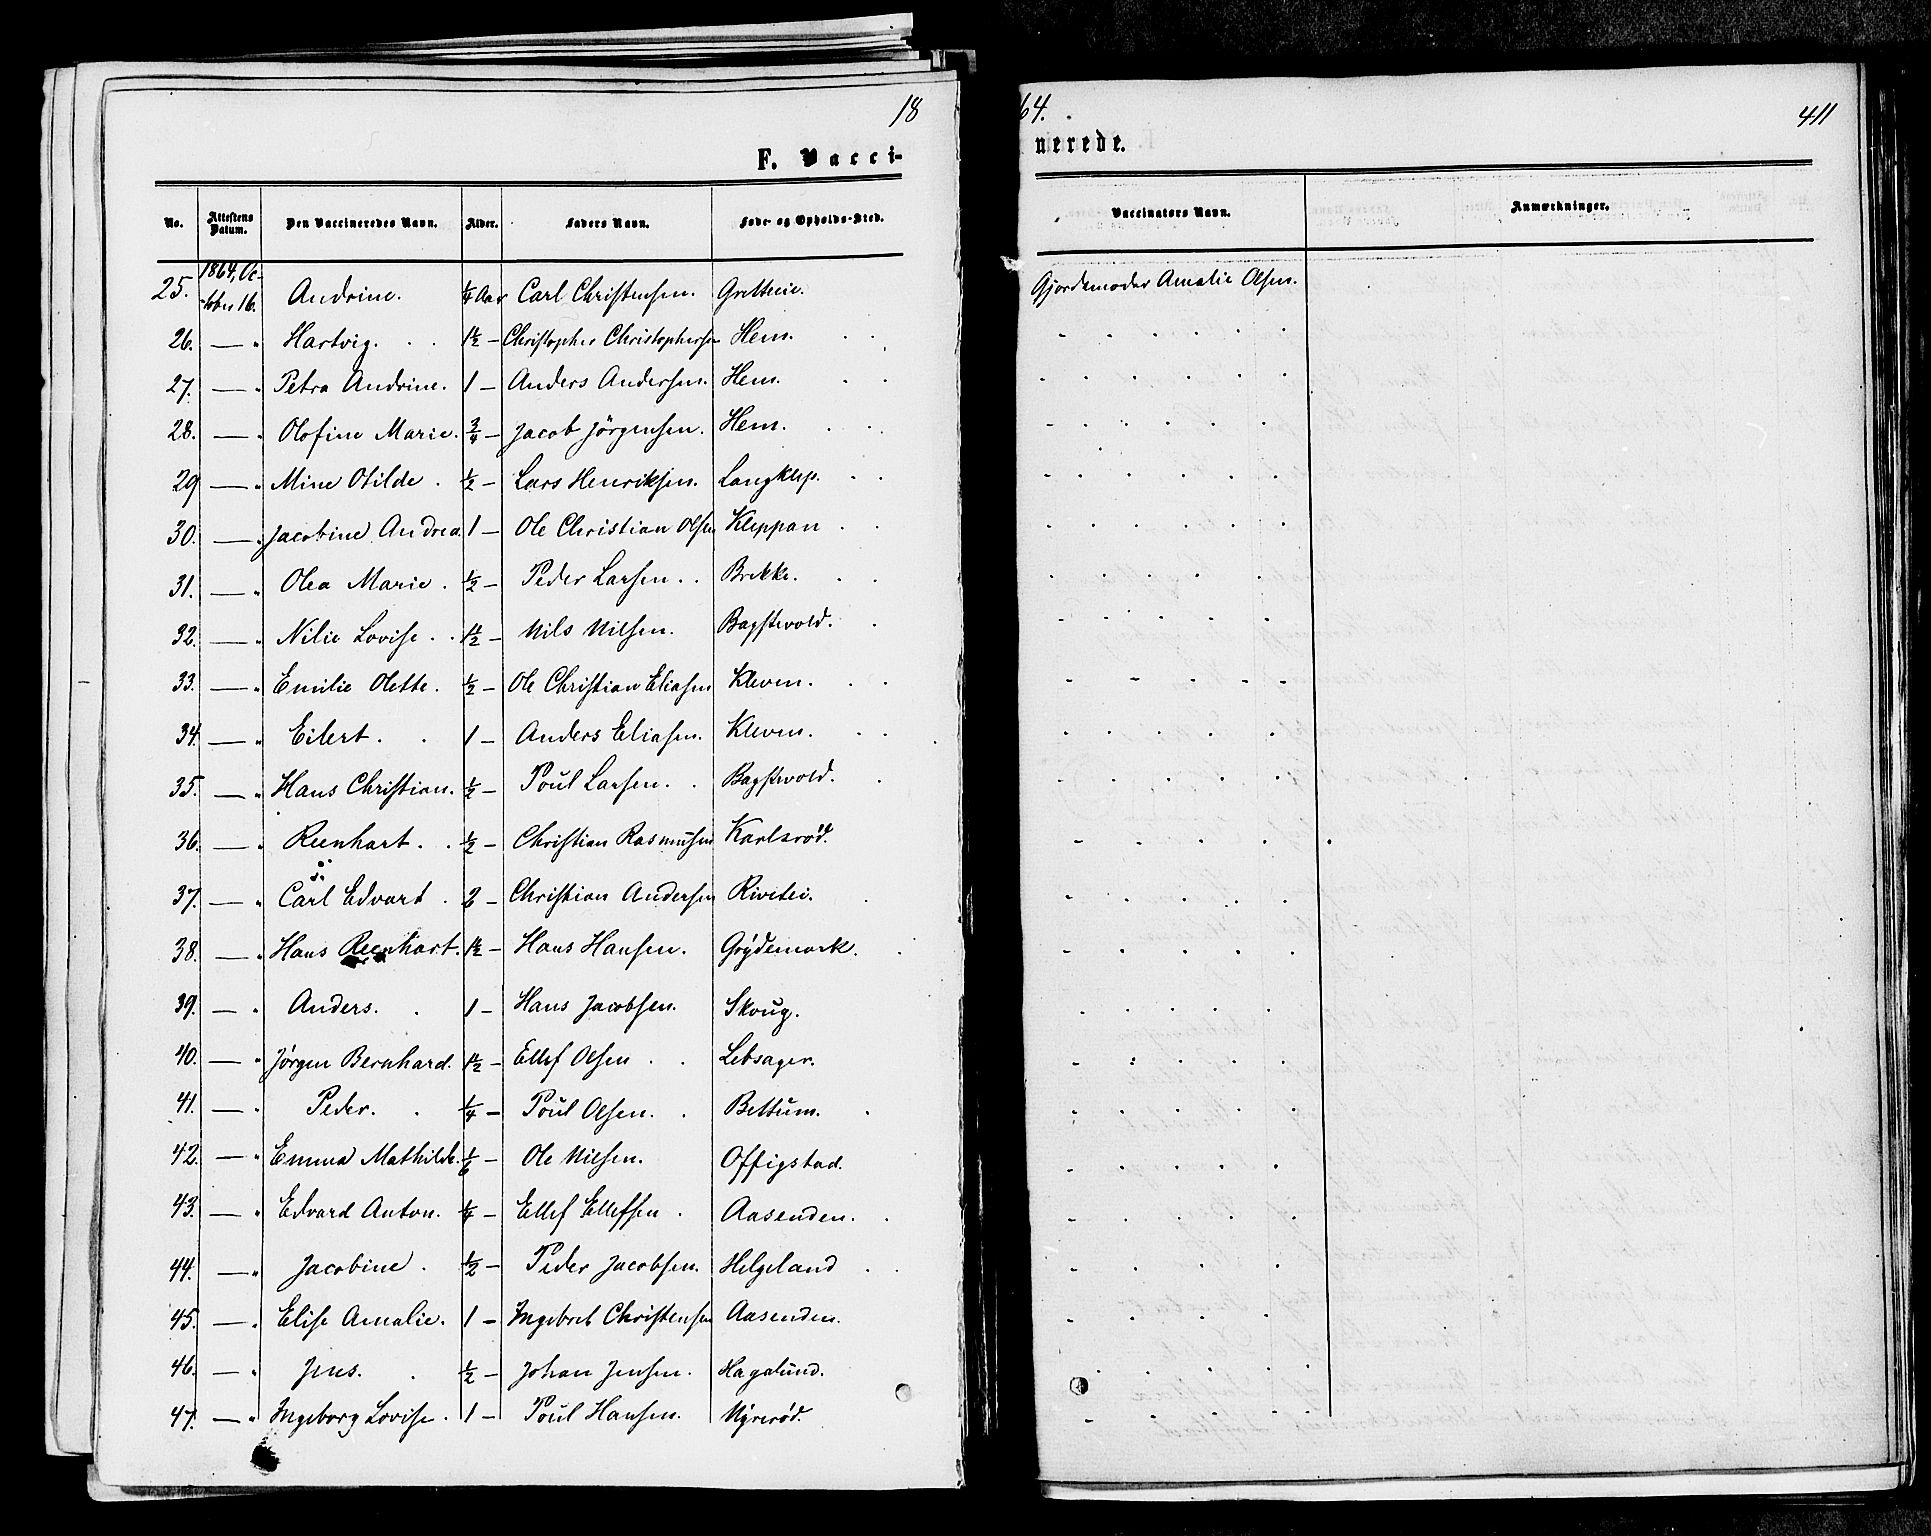 18
F. Vacci-
No. Attestens Datum. Den Vaccineredes Navn. Alder. Faders Navn. Føde- og Opholds-Sted.
25. 1864, Oc-
tober 16. Andrine. 1/4 Aar Carl Christensen. Gretteie.
26. — " Hartvig. 1 1/2 – Christopher Christophersen Hem.
27. — " Petra Andrine. 1 – Anders Andersen. Hem.
28. — " Olofine Marie. 3/4 – Jacob Jörgensen. Hem.
29 — " Mine Otilde. 1/2 – Lars Henriksen. Langklep.
30. — " Jacobine Andrea. 1 – Ole Christian Olsen Kleppan
31. — " Olea Marie. 1/2 – Peder Larsen. Brekke.
32. — " Nilie Lovise. 1 1/2 – Nils Nilsen. Bagstevold.
33. — " Emilie Olette. 1/2 – Ole Christian Eliasen Kleven.
34. — " Eilert. 1 – Anders Eliasen. Kleven.
35. — " Hans Christian. 1/2 – Poul Larsen. Bagstevold.
36. — " Reenhart. 1/2 – Christian Rasmusen Karlsrød.
37. — " Carl Edvart. 2 – Christian Andersen Rivetei.
38. — " Hans Reenhart. 1 1/2 – Hans Hansen. Grydemork.
39. — " Anders. 1 – Hans Jacobsen. Skoug.
40. — " Jørgen Bernhard. 1 1/2 – Ellef Olsen Lebsager.
41. — " Peder. 1/4 – Poul Olsen. Bettum.
42. — " Emma Mathilde. 1/6 – Ole Nilsen. Offigstad.
43. — " Edvard Anton. 1/4 – Ellef Ellefsen Aasenden.
44. — " Jacobine. 1/2 – Peder Jacobsen. Helgeland
45. — " Elise Amalie. 1 – Ingebret Christensen Aasenden.
46. — " Jens. 1/2 – Johan Jensen. Hagalund.
47. — " Ingeborg Lovise. 1 – Poul Hansen. Nyrerød.
64.
411
nerede.
Vaccinators Navn. Anmærkninger.
Gjordemoder Amalie Olsen.